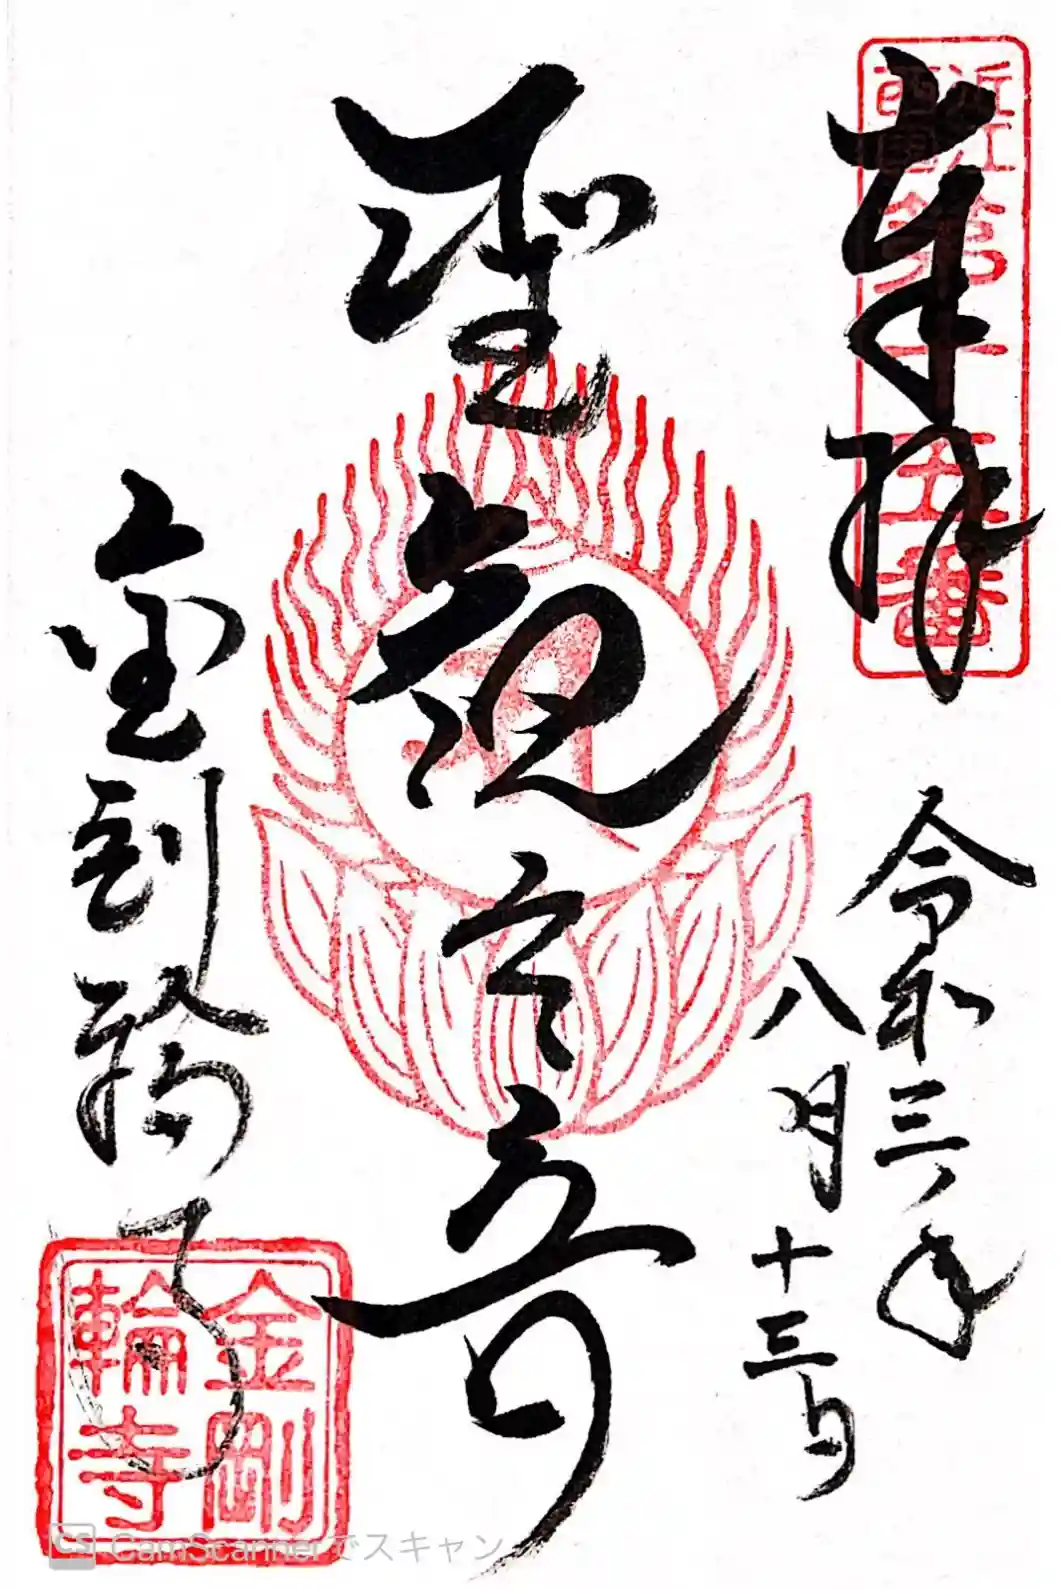 奉拝
近江
西国
第十五番
令和三年
八月十三日
聖観世音
金剛輪寺
金剛
輪寺
CS CamScannerでスキャン